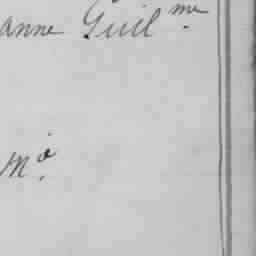 anne Guil.me
M.a